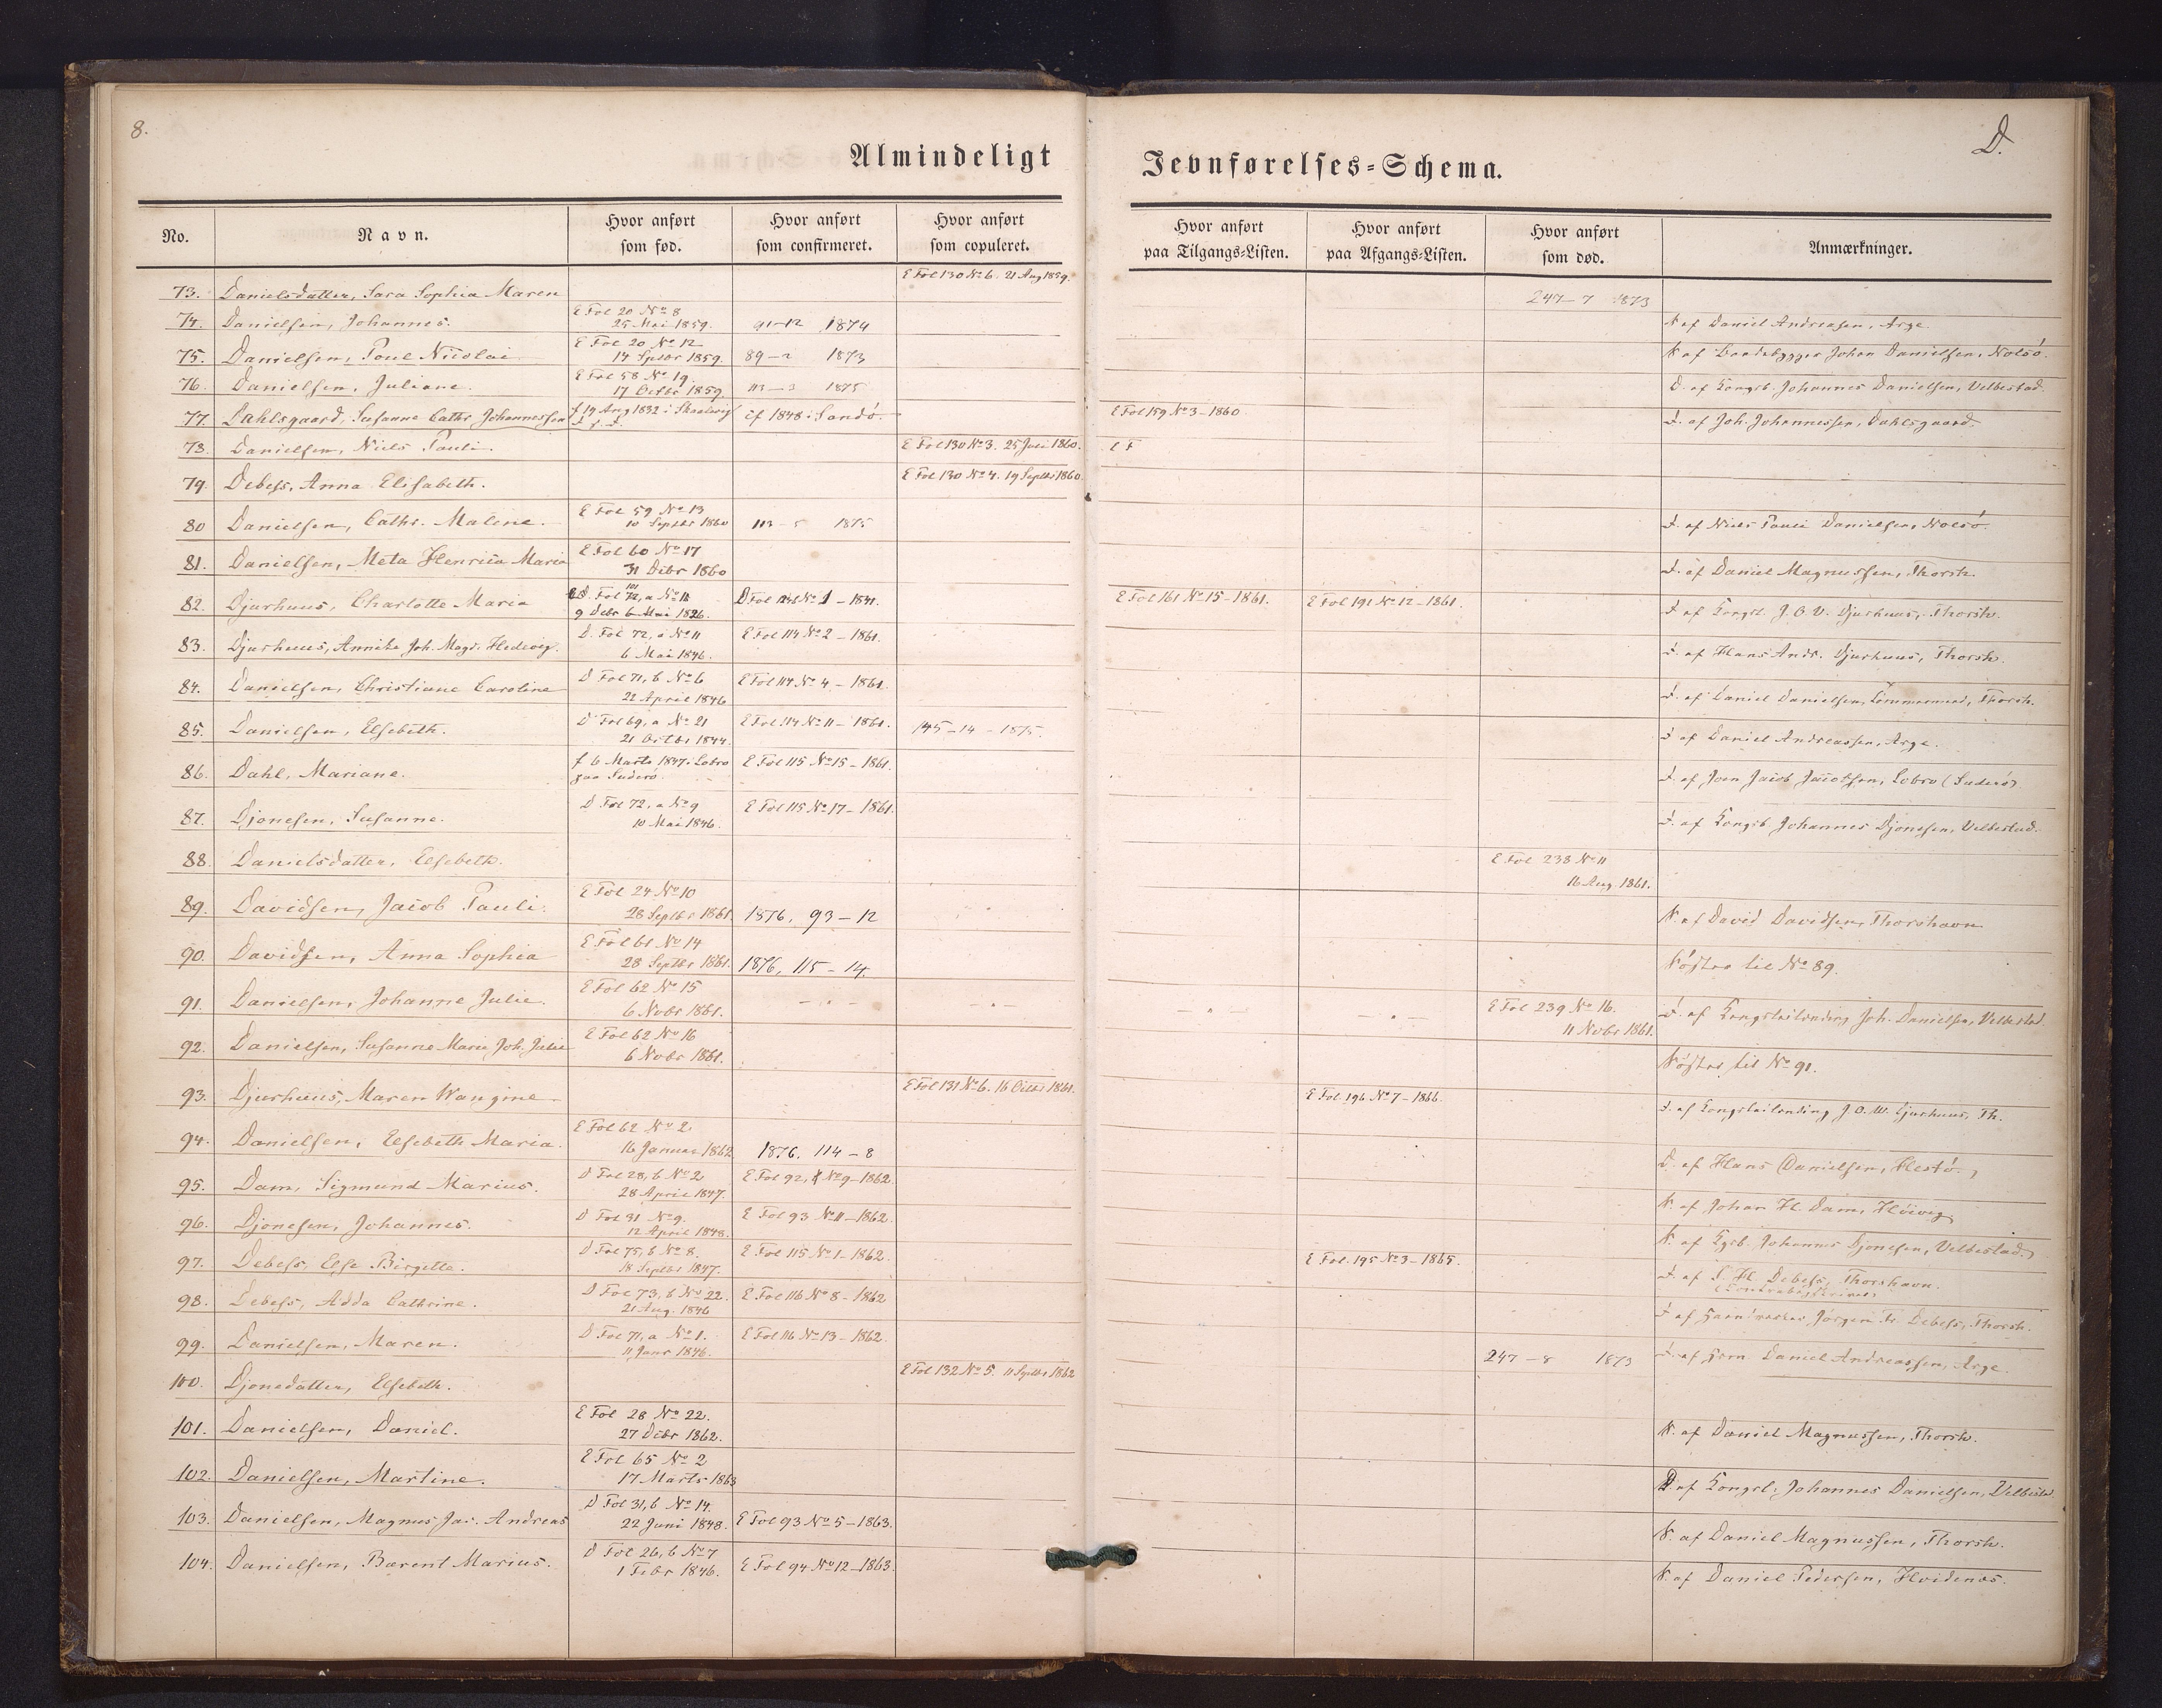 8.
D.
Almindeligt Jevnførelses-Schema.
No.
Navn.
Hvor anført som fød.
Hvor anført som confirmeret.
Hvor anført som copuleret.
Hvor anført paa Tilgangs-Listen.
Hvor anført paa Afgangs-Listen.
Hvor anført som død.
Anmærkninger.
73. Danielsdatter, Sara Sophia Maren E Fol 130 No 6. 21 Aug 1859. 247-7 1873
74. Danielsen, Johannes. E Fol 20 No 8 25 Mai 1859. 91-12 1874 S. af Daniel Andreasen, Arge.
75. Danielsen, Poul Nicolai E Fol 20 No 12 14 Septbr 1859. 89-2 1873 S. af Baadebygger Johan Danielsen, Nolsö.
76. Danielsen, Juliane. E Fol 58 No 19 17 Octbr 1859. 113-3 1875 D. af Kongsb. Johannes Danielsen, Velbestad.
77. Dahlsgaard, Susanne Cathr. Johannessen f 19 Aug 1832 i Skaalevig cf 1848 i Sandö. E Fol 159 No 3-1860 D. af Joh. Johannessen, Dahlsgaard.
78. Danielsen, Niels Pauli. E Fol 130 No 3. 25 Juli 1860. E F
79. Debess, Anna Elisabeth. E Fol 130 No 4. 19 Septbr 1860
80 Danielsen, Cathr. Malene. E Fol 59 No 13 10 Septbr 1860 113-5 1875 D. af Niels Pauli Danielsen, Nolsö.
81. Danielsen, Meta Henrica Maria E Fol 60 No 17 31 Decbr 1860 D. af Daniel Magnussen, Thorsh.
82. Djurhuus, Charlotte Maria 9 Decbr 6 Mai 1826. No 1 - 1841. E Fol 161 No 15-1861. E Fol 191 No 12-1861. D. af Kongsl. J. O. V. Djurhuus, Thorsh.
83. Djurhuus, Annike Joh. Magr. Hedevig. D. Fol 72, a No 11 6 Mai 1846. E Fol 114 No 2 - 1861. D. af Hans Andr. Djurhuus, Thorsh.
84. Danielsen, Christiane Caroline D Fol 71, b No 6 22 April 1846 E Fol 114 No 4 - 1861. D. af Daniel Danielsen, Tömmermand, Thorsh.
85. Danielsen, Elsebeth. D Fol 69, a No 21 21 Octbr 1844. E Fol 114 No 11 - 1861. 145-14-1875. D af Daniel Andreassen, Arge.
86. Dahl, Mariane. f 6 Marts 1847 i Lobro paa Suderö E Fol 115 No 15 - 1861. D. af Joen Jacob Jacobsen, Lobro (Suderö)
87. Djonesen, Susanne. D Fol 72, a No 9 10 Mai 1846. E Fol 115 No 17 - 1861. D. af Kongsb Johannes Djonesen, Velbestad.
88. Danielsdatter, Elsebeth. E Fol 238 No 11 16 Aug 1861.
89. Davidsen, Jacob Pauli. E Fol 24 No 10 28 Septbr 1861. 1876, 93-12 S. af David Davidsen, Thorshavn
90. Davidsen, Anna Sophia E Fol 61 No 14 28 Septbr 1861. 1876, 115-14. Söster til No 89.
91. Danielsen, Johanne Julie. E Fol 62 No 15 6 Novbr 1861. - " - - " - - " - - " - E Fol 239 No 16. 11 Novbr 1861. D. af Joh. Danielsen, Velbestad.
92. Danielsen, Susanne Marie Joh. Julie E Fol 62 No 16 6 Novbr 1861. Söster til No 91.
93. Djurhuus, Maren Wangine E Fol 131 No 6. 16 Octbr 1861. E Fol. 196 No 7-1866. D. af J. O. W. Djurhuus, Th.
94. Danielsen, Elsebeth Maria. E Fol 62 No 2 16 Januar 1862 1876. 114-8 D. af Hans Danielsen, Hestö.
95. Dam, Sigmund Marius. D Fol 28, b No 2 28 April 1847. E Fol 92, No 9-1862. S. af Johan H. Dam, Höivig
96. Djonesen, Johannes. D Fol 31 No 9. 12 April 1848. E Fol 93 No 11-1862. S. af Kgsb. Johannes Djonesen, Velbestad.
97. Debess, Else Birgette. D Fol 75, b No 8. 18 Septbr 1847. E Fol 115 No 1-1862. E Fol. 195 No 3-1865. D. af Debess, Thorshavn.
98. Debess, Adda Cathrine. D Fol 73, b No 22. 21 Aug. 1846 E Fol 116 No 8-1862 D af Jörgen Fr. Debess, Thorsh.
99. Danielsen, Maren. D Fol 71, a No 1. 11 Janr 1846. E Fol 116 No 13-1862. 247-8 1873 D. af Daniel Andreassen, Arge.
100. Djonedatter, Elsebeth. E Fol 132 No 5. 11 Septbr 1862
101. Danielsen, Daniel. E Fol 28 No 22. 27 Decbr 1862. S. af Daniel Magnussen, Thorsh.
102. Danielsen, Martine. E Fol 65 No 2 17 Marts 1863 D. af Kongsl. Johannes Danielsen, Velbestd.
103. Danielsen, Magnus Jac. Andreas D Fol 31, b No 14. 22 Juni 1848. E Fol 93 No 5-1863. S. af Daniel Magnussen, Thorsh.
104. Danielsen, Barent Marius. D Fol 26, b No 7 1 Febr 1846. E Fol 94 No 12-1863. S. af Daniel Pedersen, Hvidenæs.